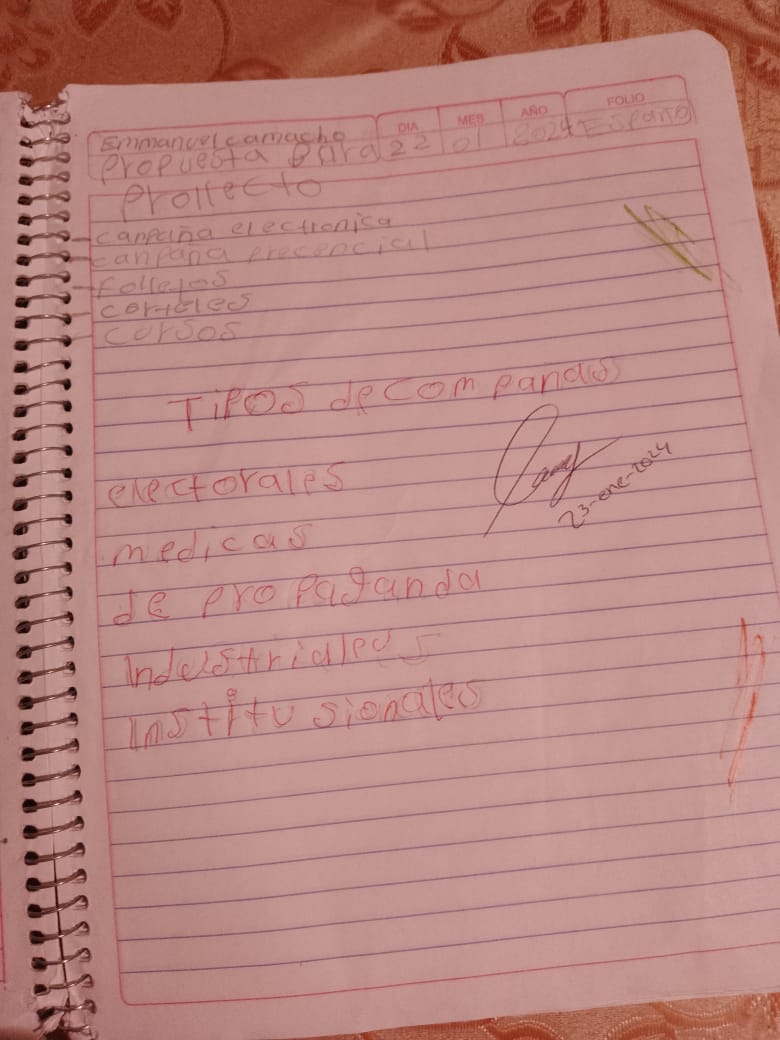 DIA MES AÑO FOLIO
Emmanuel camacho
Propuesta para 22 01 2024 Español
Prollecto
-canpaña electronica
-canpaña precencial
-Follejos
-corteles
-cursos
TiPOS de companas
electorales
medicas
de propaganda
Industriales
Institusionales
23-ene-2024